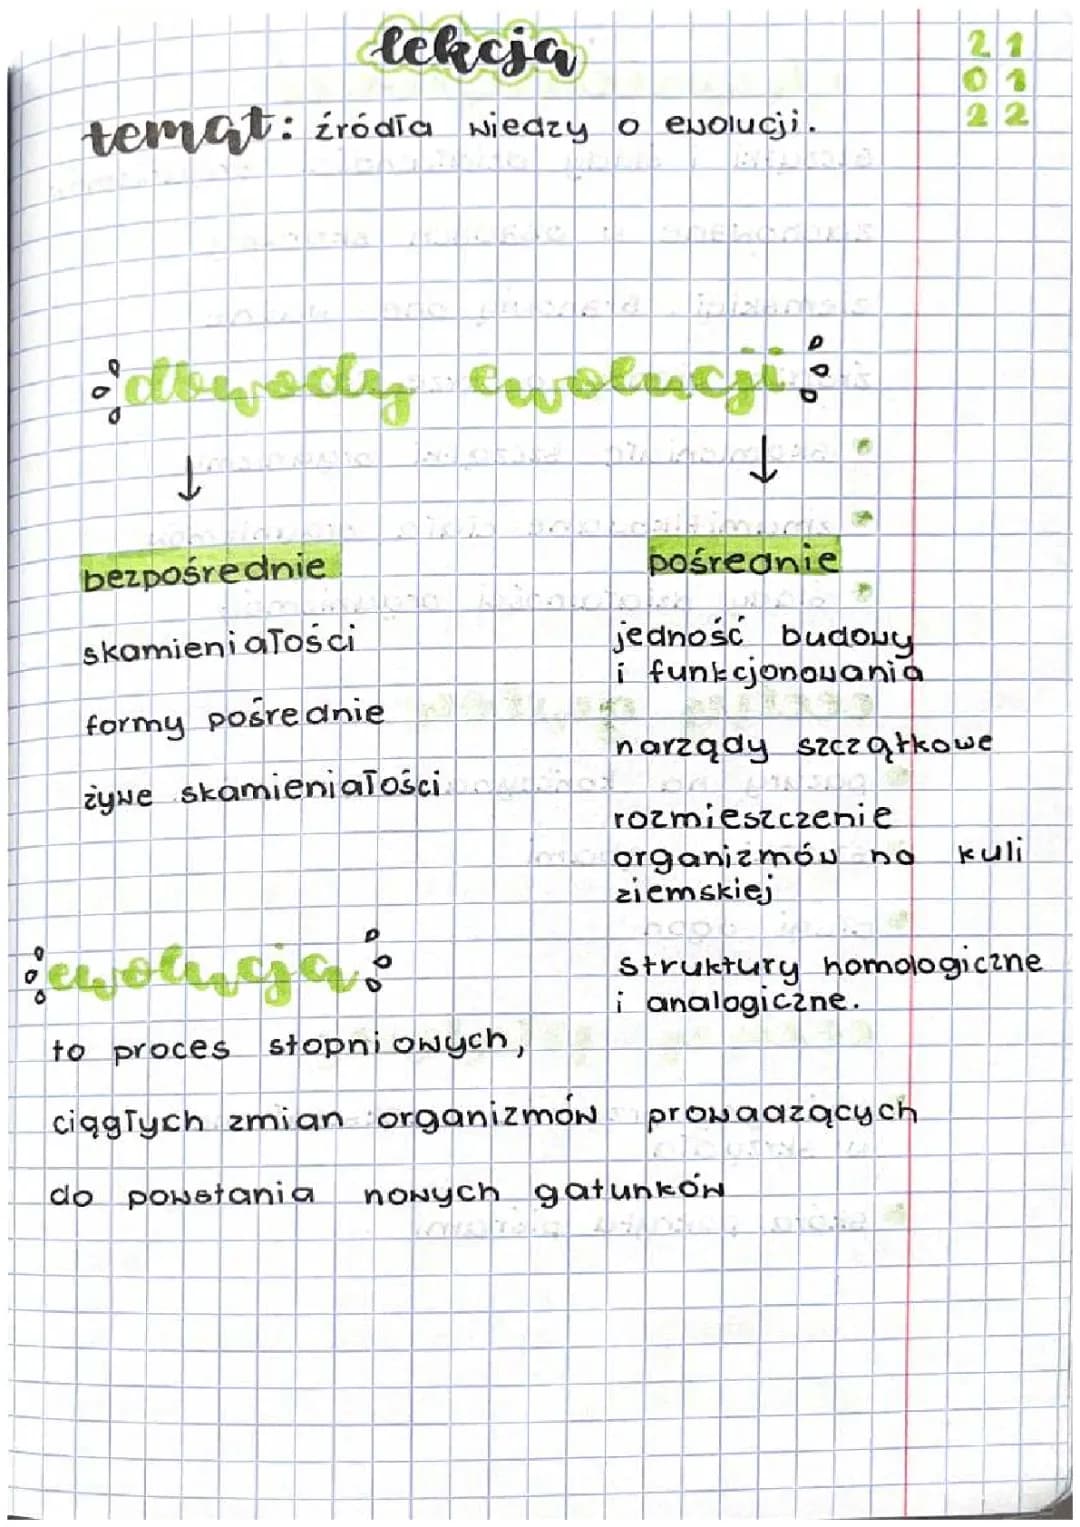 lekcja
21
01
22
temat: źródła wiedzy o ewolucji.
dowody ewolucji
bezpośrednie
skamieniałości
formy pośrednie
żywe skamieniałości
pośrednie
jedność budowy
i funkcjonowania
narządy szczątkowe
rozmieszczenie
organizmów na kuli
ziemskiej
struktury homologiczne
i analogiczne.
ewolucja
to proces stopniowych,
ciągłych zmian organizmów prowadzących
do powstania nowych gatunków